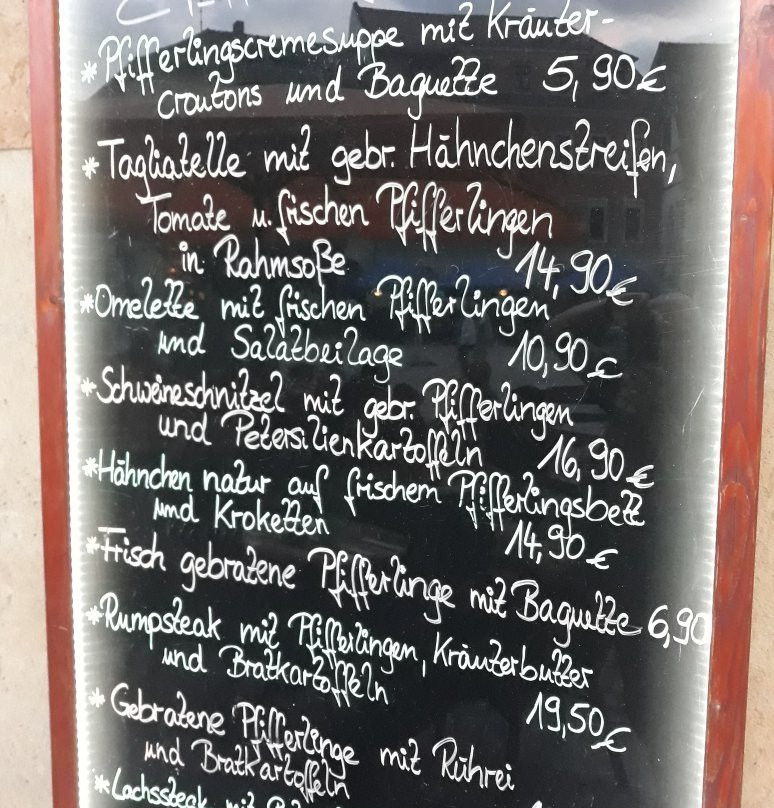 * Pfifferlingscremesuppe mit Kräuter-
croutons und Baguette 5,90€
* Tagliatelle mit gebr. Hähnchenstreifen,
Tomate u. frischen Pfifferlingen
in Rahmsoße 14,90€
* Omelette mit frischen Pfifferlingen
und Salatbeilage 10,90€
* Schweineschnitzel mit gebr. Pfifferlingen
und Petersilienkartoffeln 16,90€
* Hähnchen natur auf frischem Pfifferlingsbett
und Kroketten 14,90€
* Frisch gebratene Pfifferlinge mit Baguette 6,90
* Rumpsteak mit Pfifferlingen, Kräuterbutter
und Bratkartoffeln 19,50€
* Gebratene Pfifferlinge mit Rührei
und Bratkartoffeln
* Lachssteak mit